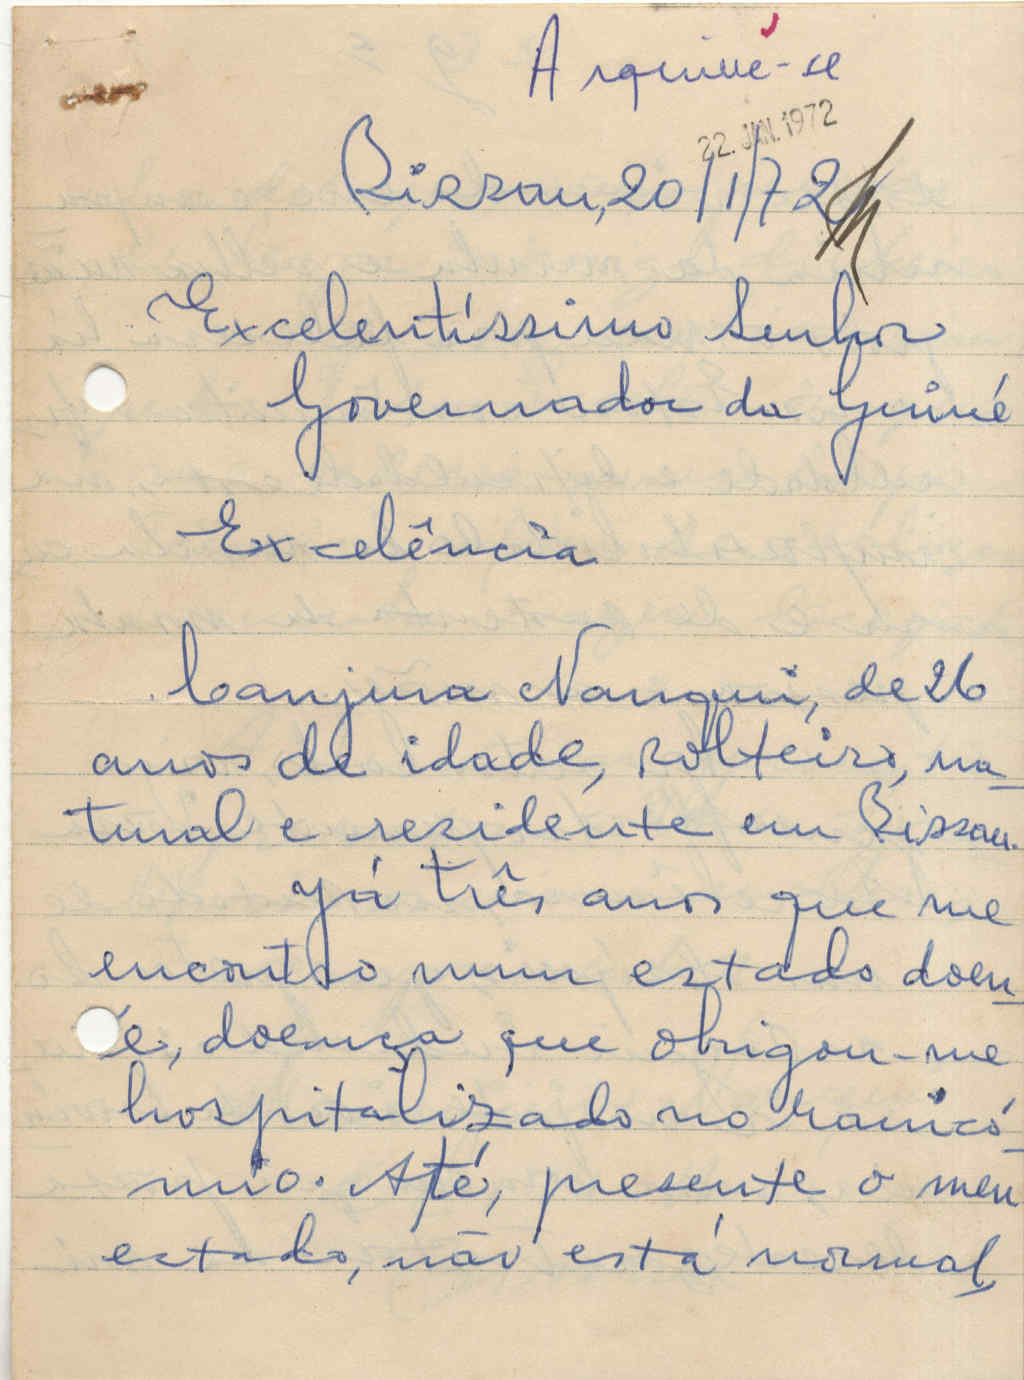 Arquive-se
22. JAN. 1972
Bissau, 20/1/72
Excelentíssimo Senhor
Governador da Guiné
Excelência
Canjura Nanqui, de 26
anos de idade, solteiro, na_
tural e residente em Bissau.
Já três anos que me
encontro num estado doen_
te, doença que obrigou-me
hospitalizado no manicó_
mio. Até, presente o meu
estado, não está normal,